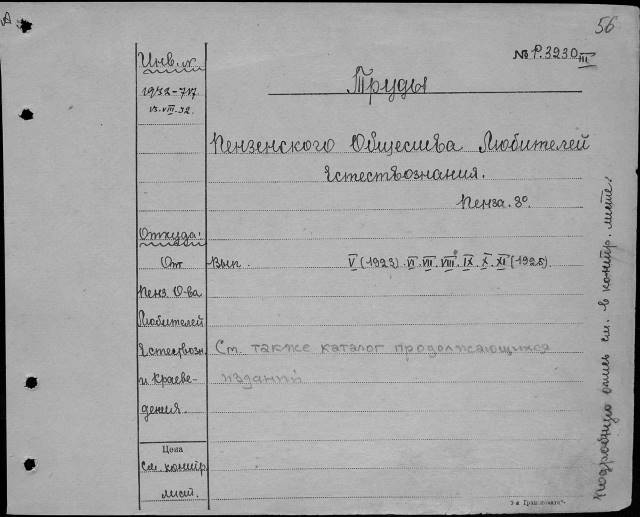 А
56
№ Р.3230 III
Инв. №
1932-717
13.VIII.32.
Труды
Пензенского Общества Любителей
Естествознания.
Пенза. 8°.
Откуда:
От
Пенз. О-ва
Любителей
Естествозн.
и Краеве-
дения.
Вып. V (1923) VI. VII. VIII. IX. X. XI (1925).
См. также каталог продолжающихся
изданий
Цена
См. контр.
лист.
Подробную опись см. в контр. листе.